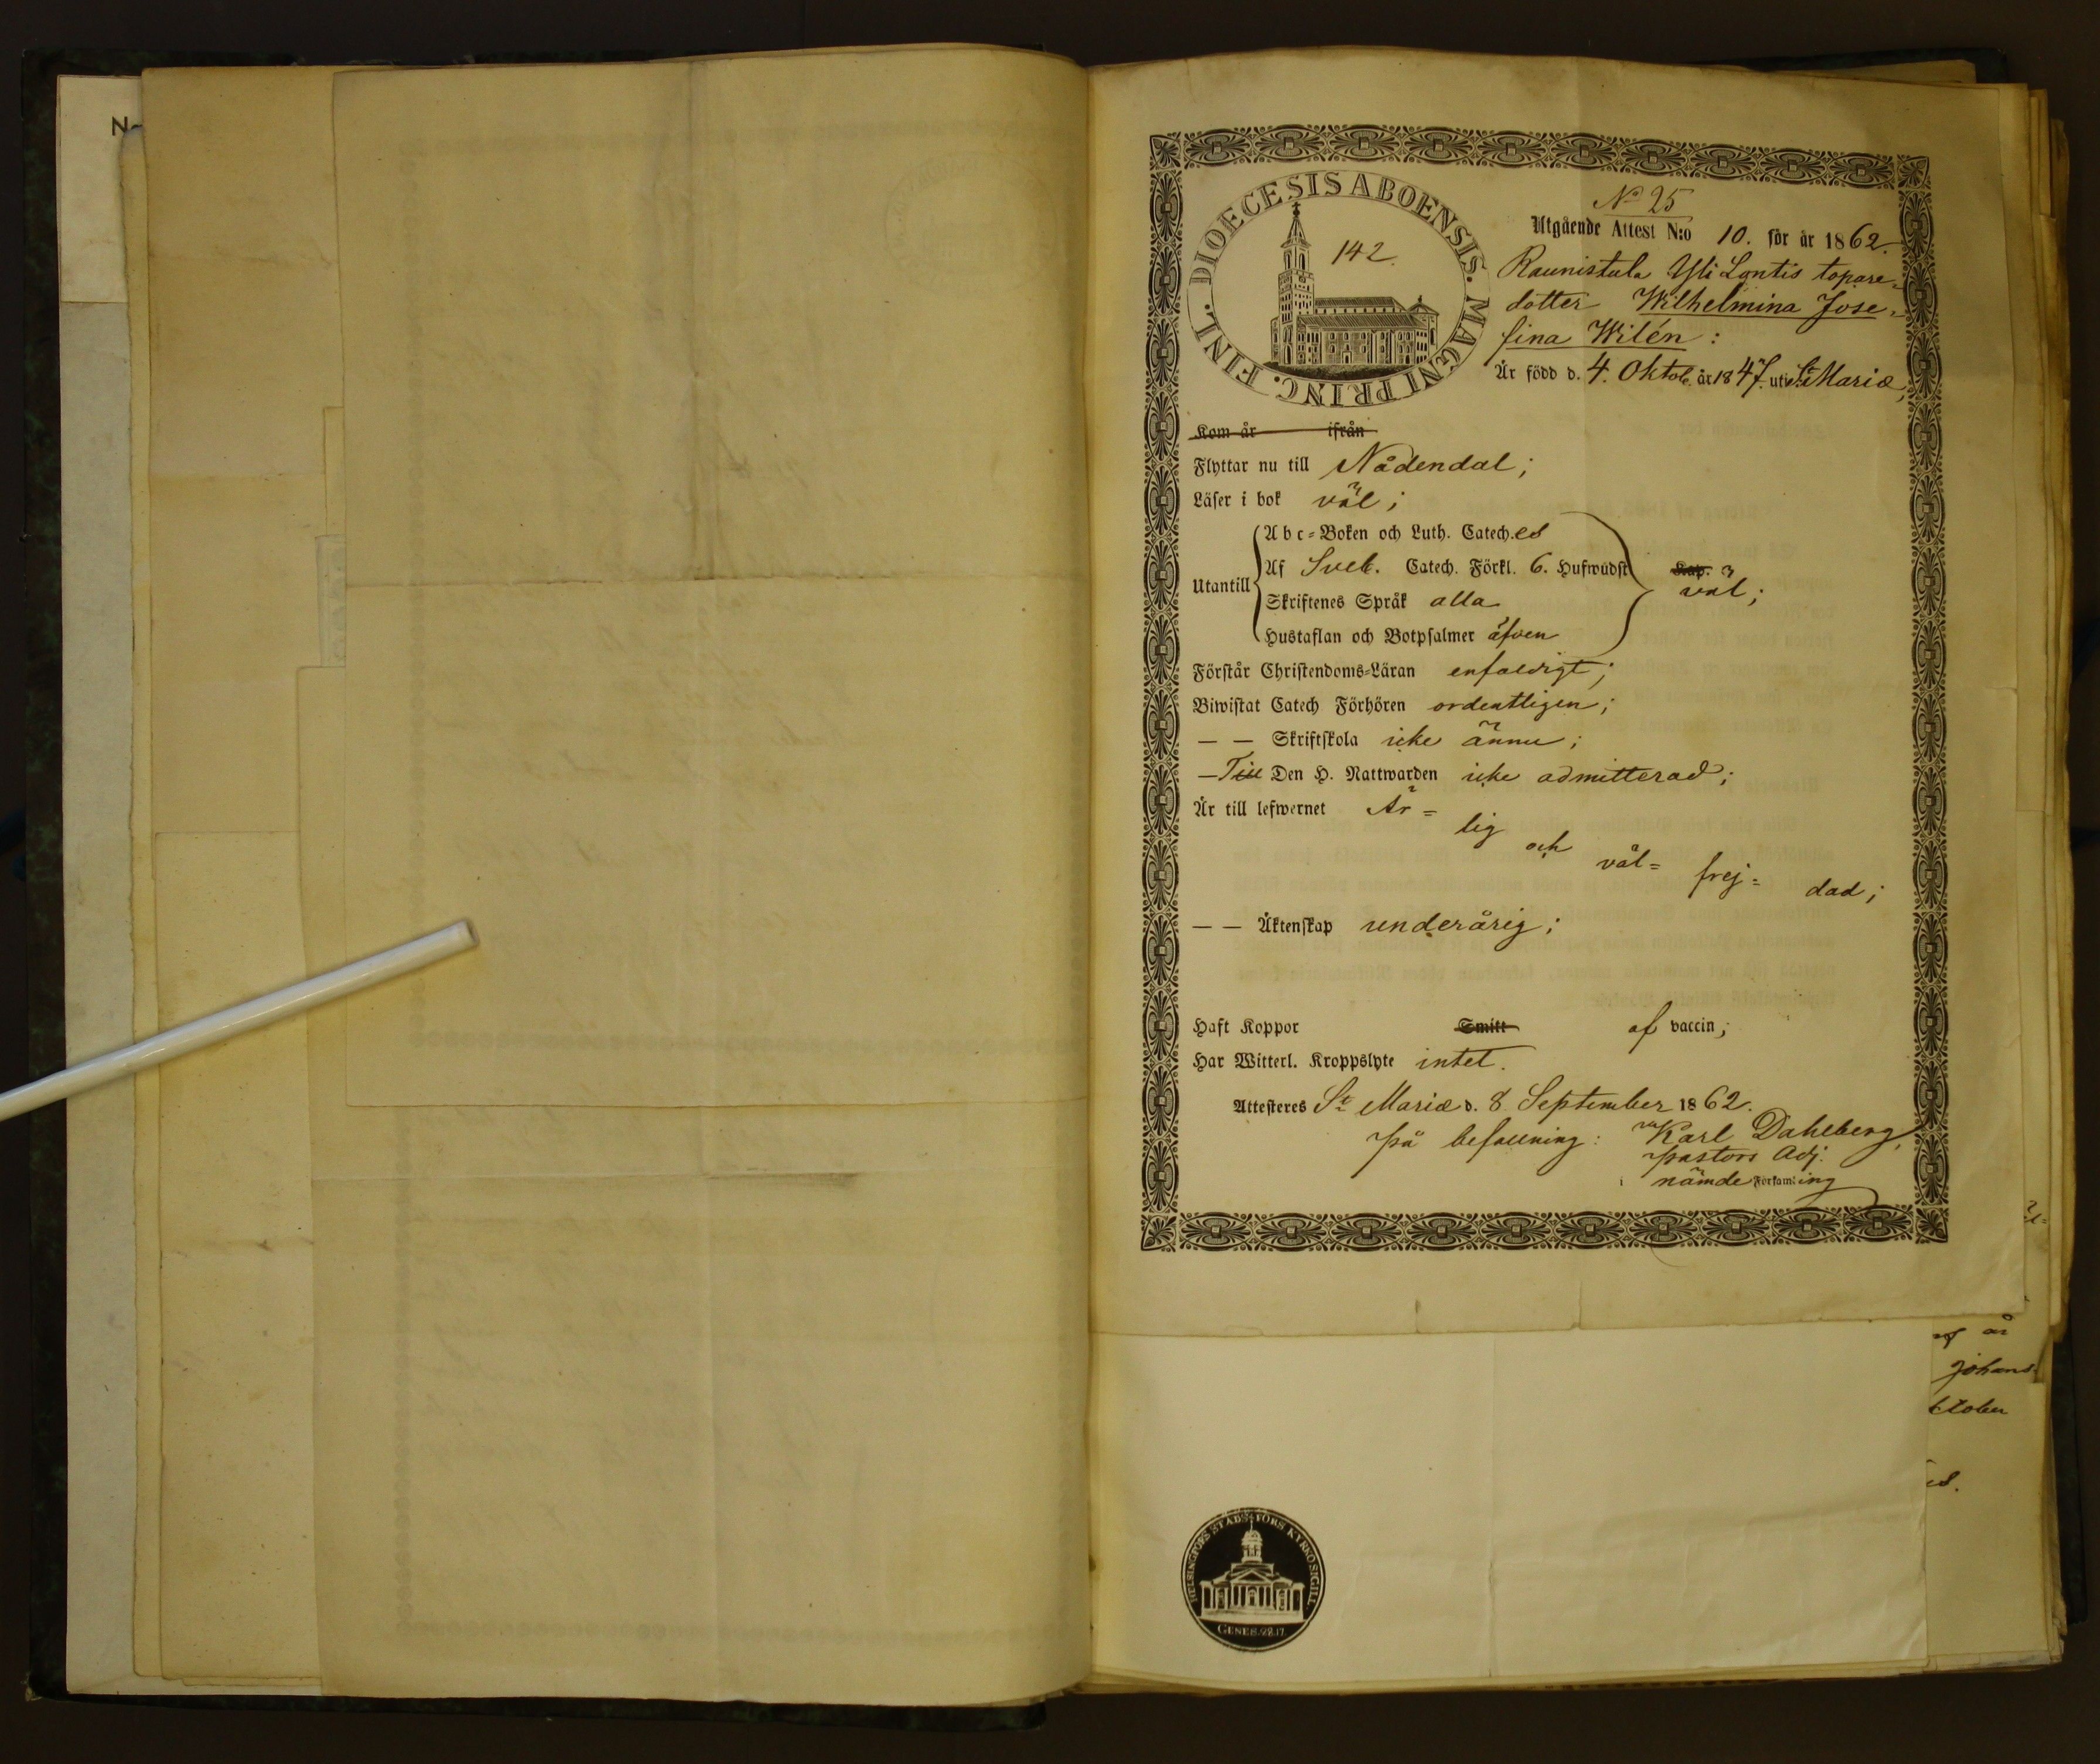 N
DIOECESIS ABOENSIS. MAGNI PRINC. FINL.
142.
No 25
Utgående Attest N:o 10. för år 1862.
Raunistula Yli Lontis topare-
dotter Wilhelmina Jose-
fina Wilén:
Är född d. 4. Oktob. år 1847. uti St Mariæ,
Kom år ifrån
Flyttar nu till Nådendal;
Läser i bok väl;
Abc-Boken och Luth. Catech. es
Af Sveb. Catech. Förkl. 6. Hufwudst. Kap.
Utantill väl;
Skriftenes Språk alla
Hustaflan och Botpsalmer äfven
Förstår Christendoms-Läran enfaldigt;
Biwistat Catech Förhören ordentligen;
— — Skriftskola icke ännu;
— Till Den H. Nattwarden icke admitterad;
Är till lefwernet Är=
lig och väl= frej= dad;
— — Äktenskap underårig;
Haft Koppor Smitt af vaccin;
Har Witterl. Kroppslyte intet.
Attesteres St Mariæ d. 8 September 1862.
På befallning: Karl Dahlberg,
Pastors Adj.
i nämde Församling
af år
Johans-
ktober
HELSINGFORS STADS FÖRS KYRKO SIGILL.
GENES. 28.17.